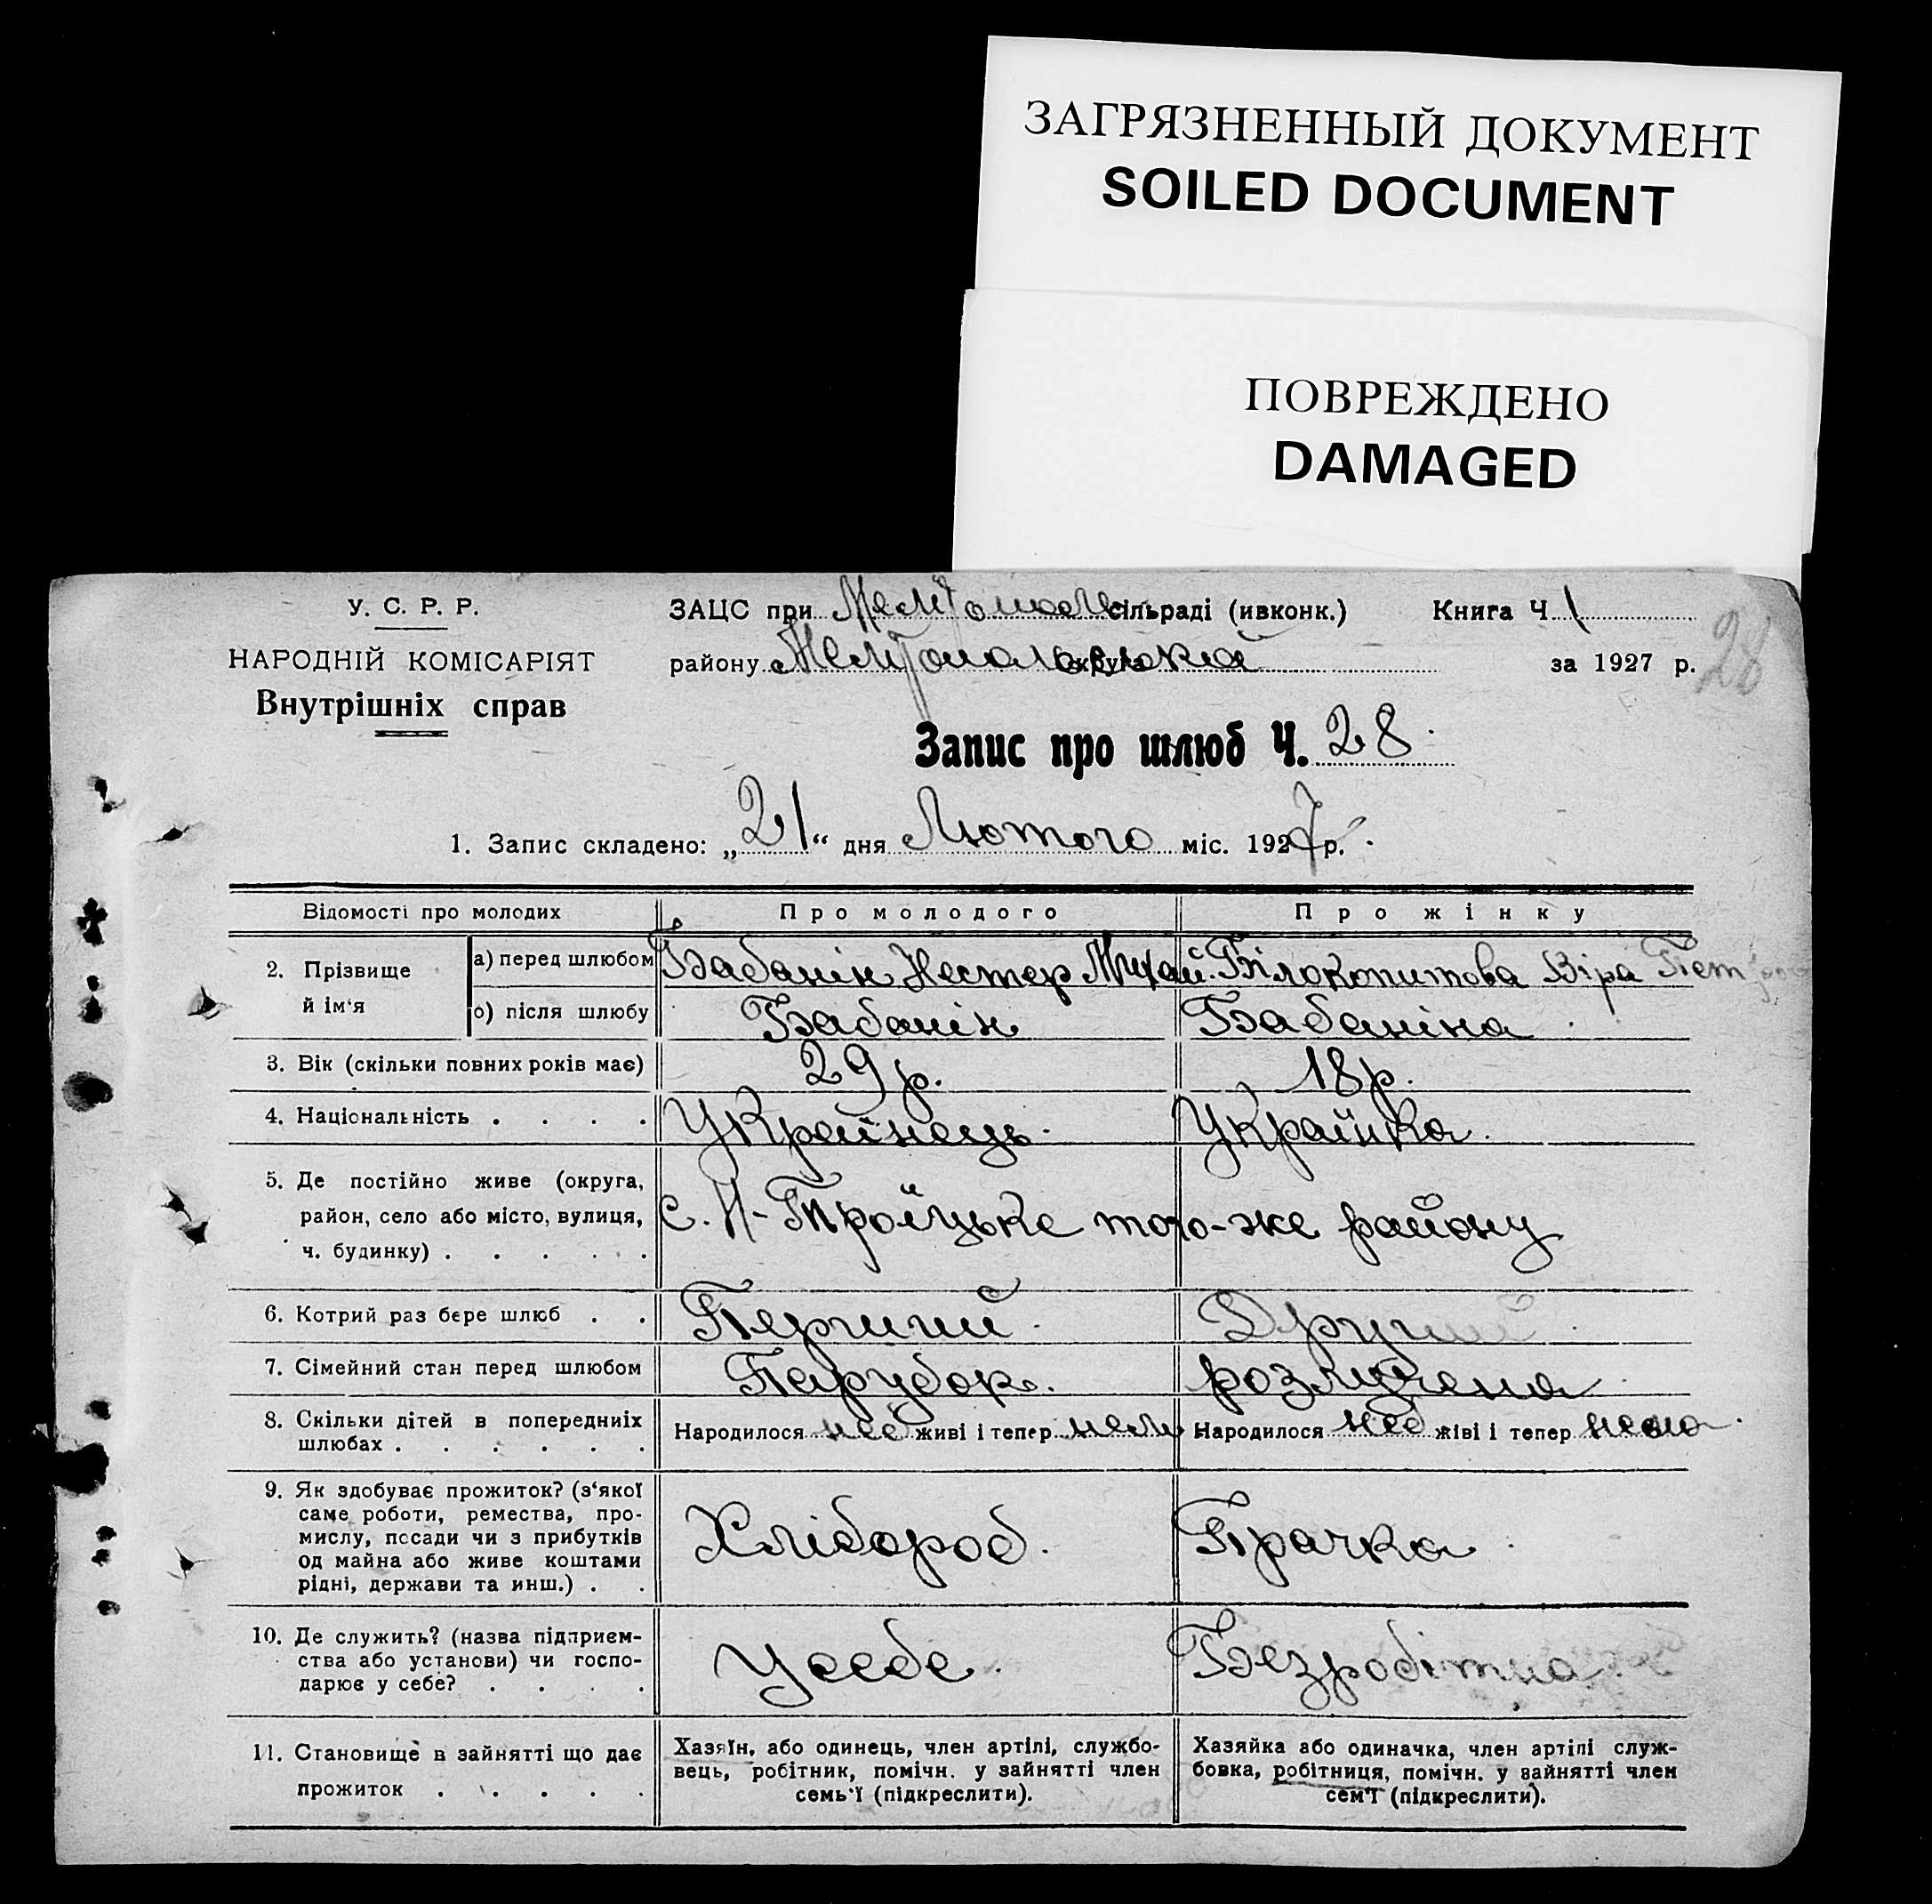 ЗАГРЯЗНЕННЫЙ ДОКУМЕНТ
SOILED DOCUMENT
ПОВРЕЖДЕНО
DAMAGED
У. С. Р. Р.
НАРОДНІЙ КОМІСАРІЯТ
Внутрішніх справ
ЗАЦС при сільраді (ивконк.) Книга Ч. 1
району округи за 1927 р.
28
Запис про шлюб Ч. 28
1. Запис складено: „21“ дня Лютого міс. 1927 р.
Відомості про молодих Про молодого Про жінку
2. Прізвище й ім‘я
а) перед шлюбом Бабанін Нестер Михай. Білокопитова Віра Пет
о) після шлюбу Бабанін Бабаніна
3. Вік (скільки повних років має) 29 р. 18 р.
4. Національність . . . . Українець. Українка.
5. Де постійно живе (округа,
район, село або місто, вулиця,
ч. будинку) . . . . .
с. Н-Троїцьке того-же району
6. Котрий раз бере шлюб . . Перший. Другий.
7. Сімейний стан перед шлюбом Парубок. розлучена.
8. Скільки дітей в попередниіх
шлюбах . . . . . .
Народилося живі і тепер Народилося живі і тепер нема.
9. Як здобуває прожиток? (з‘якої
саме роботи, ремества, про-
мислу, посади чи з прибутків
од майна або живе коштами
рідні, держави та инш.) . .
Хлібороб. Прачка.
10. Де служить? (назва підприєм-
ства або установи) чи госпо-
дарює у себе? . . . .
Усебе. Безробітна.
11. Становище в зайнятті що дає
прожиток . . . . .
Хазяїн, або одинець, член артілі, службо-
вець, робітник, помічн. у зайнятті член
семь‘ї (підкреслити).
Хазяйка або одиначка, член артілі служ-
бовка, робітниця, помічн. у зайнятті член
сем‘ї (підкреслити).